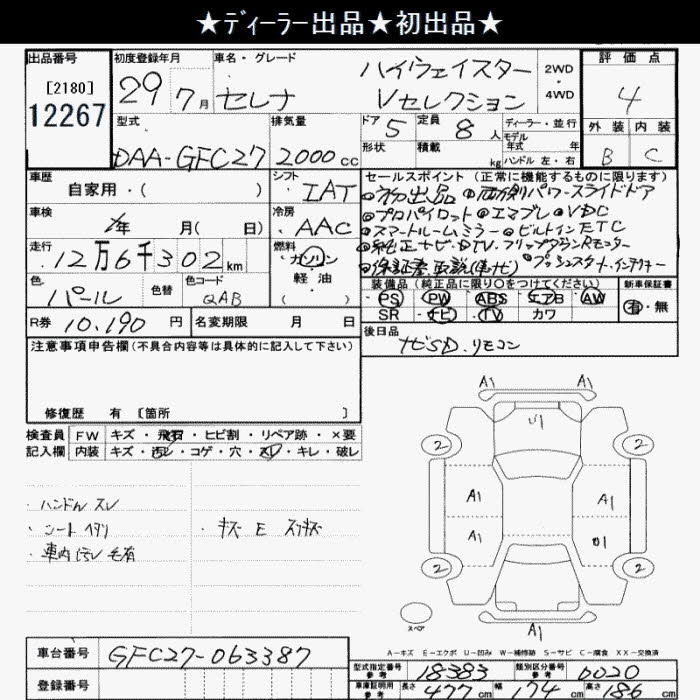 ★ディーラー出品★初出品★
出品番号
[2180]
12267
初度登録年月
29年 7月
車名・グレード
セレナ
ハイウェイスター
Vセレクション
2WD
・
4WD
評価点
4
外装 内装
B C
型式
DAA-GFC27
排気量
2000cc
ドア 5
定員 8人
形状
積載 kg
ディーラー・並行
モデル年式 年
ハンドル 左・右
車歴
自家用・( )
シフト
IAT
車検
年 月( 日)
冷房
AAC
走行
12万6千302km
燃料
ガソリン
軽油
( )
色
パール
色替
色コード
QAB
セールスポイント (正常に機能するものに限ります)
●初出品 ●両側パワースライドドア
●プロパイロット ●エマブレ ●VDC
●スマートルームミラー ●ビルトインETC
●純正ナビ・DTV、フリップダウンRモニター
●保証書、取説(車、ナビ) ●プッシュスタート、インテリキー
装備品 (純正品に限り○をつけてください)
PS PW ABS エアB AW
SR ナビ TV カワ
新車保証書
有・無
R券 10,190円
名変期限 月 日
後日品
ナビSD、リモコン
注意事項申告欄(不具合内容等は具体的に記入して下さい)
修復歴 有 [箇所 ]
検査員記入欄
FW キズ・飛石・ヒビ割・リペア跡・×要
内装 キズ・汚レ・コゲ・穴・スレ・キレ・破レ
・ハンドル スレ
・シート ヘタリ
・車内 汚レ 毛有
・キズ E スリキズ
A1 A1
U1
2 2
A1 A1
A1 B1
2 2
スペア
A1
A-キズ E-エクボ U-凹み W-補修跡 S-サビ C-腐食 XX-交換済
車台番号
GFC27-063387
登録番号
型式指定番号 参考
18383
類別区分番号 参考
0020
車庫証明用 参考
長さ 477cm 幅 174cm 高さ 186cm